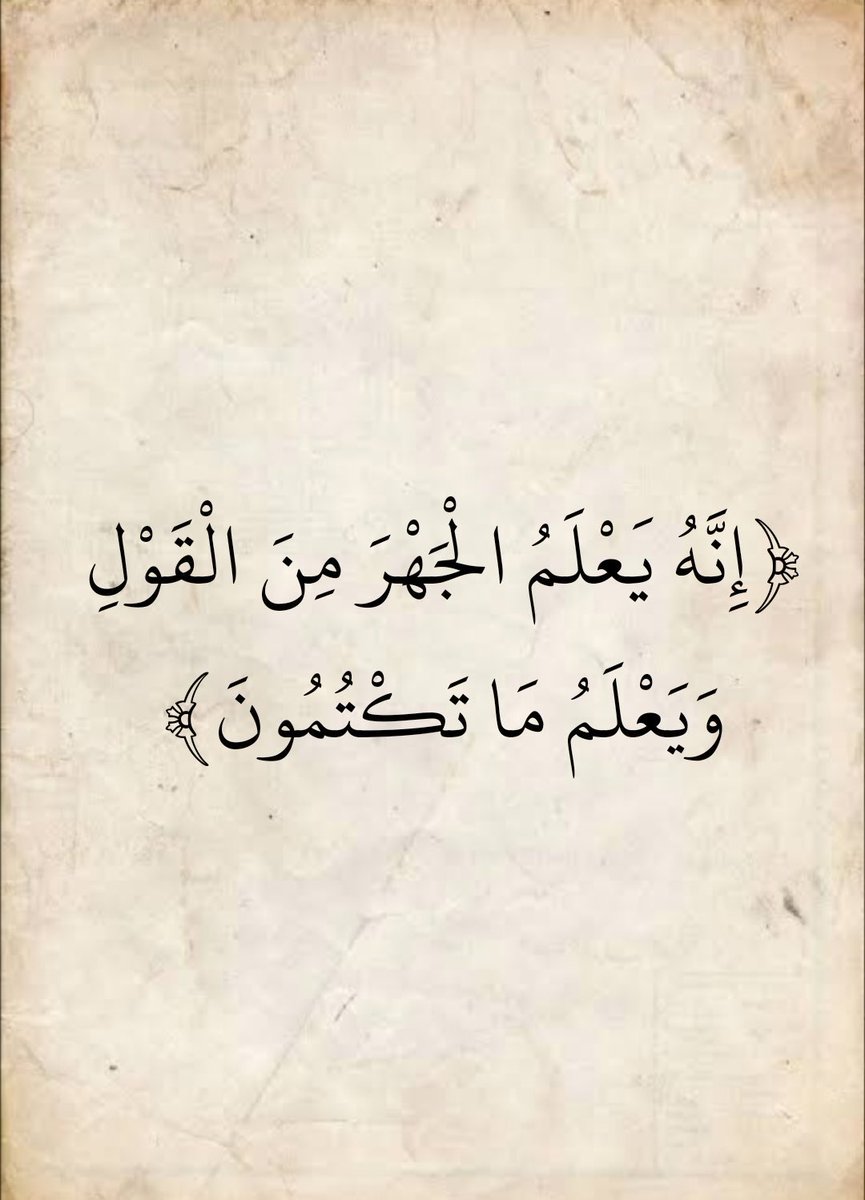 ﴿إِنَّهُ يَعْلَمُ الْجَهْرَ مِنَ الْقَوْلِ
وَيَعْلَمُ مَا تَكْتُمُونَ﴾